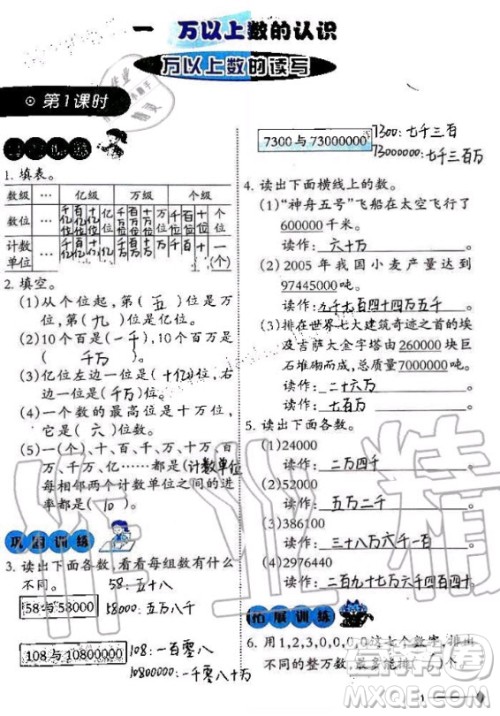 一 万以上数的认识
万以上数的读写
第1课时
1. 填表。
数级 … 亿级 万级 个级
数位 … 千亿位 百亿位 十亿位 亿位 千万位 百万位 十万位 万位 千位 百位 十位 个位
计数单位 … 千亿 百亿 十亿 亿 千万 百万 十万 万 千 百 十 一(个)
2. 填空。
(1)从个位起,第( 五 )位是万
位,第( 九 )位是亿位。
(2)10个百是( 一千 ),10个百万是
( 千万 )。
(3)亿位左边一位是( 十亿 )位,右
边一位是( 千万 )位。
(4)一个数的最高位是十万位,
它是( 六 )位数。
(5)一(个)、十、百、千、万、十万、百万、
千万、亿……都是( 计数单位 )
每相邻两个计数单位之间的进
率都是( 10 )。
巩固训练
3. 读出下面各数,看看每组数有什么
不同。 58:五十八
58与58000 58000:五万八千
108与10800000 108:一百零八
10800000:一千零八十万
7300与73000000 7300:七千三百
73000000:七千三百万
4. 读出下面横线上的数。
(1)“神舟五号”飞船在太空飞行了
600000千米。
读作: 六十万
(2)2005年我国小麦产量达到
97445000吨。
读作: 九千七百四十四万五千
(3)排在世界七大建筑奇迹之首的埃
及吉萨大金字塔由260000块巨
石堆彻而成,总质量7000000吨。
读作: 二十六万
读作: 七百万
5. 读出下面各数。
(1)24000
读作: 二万四千
(2)52000
读作: 五万二千
(3)386100
读作: 三十八万六千一百
读作: 二百九十七万六千四百四十
拓展训练
6. 用1,2,3,0,0,0,0这七个数字,排出
不同的整万数,最多能排( 6 )个。
作业精
MXQE.COM
1